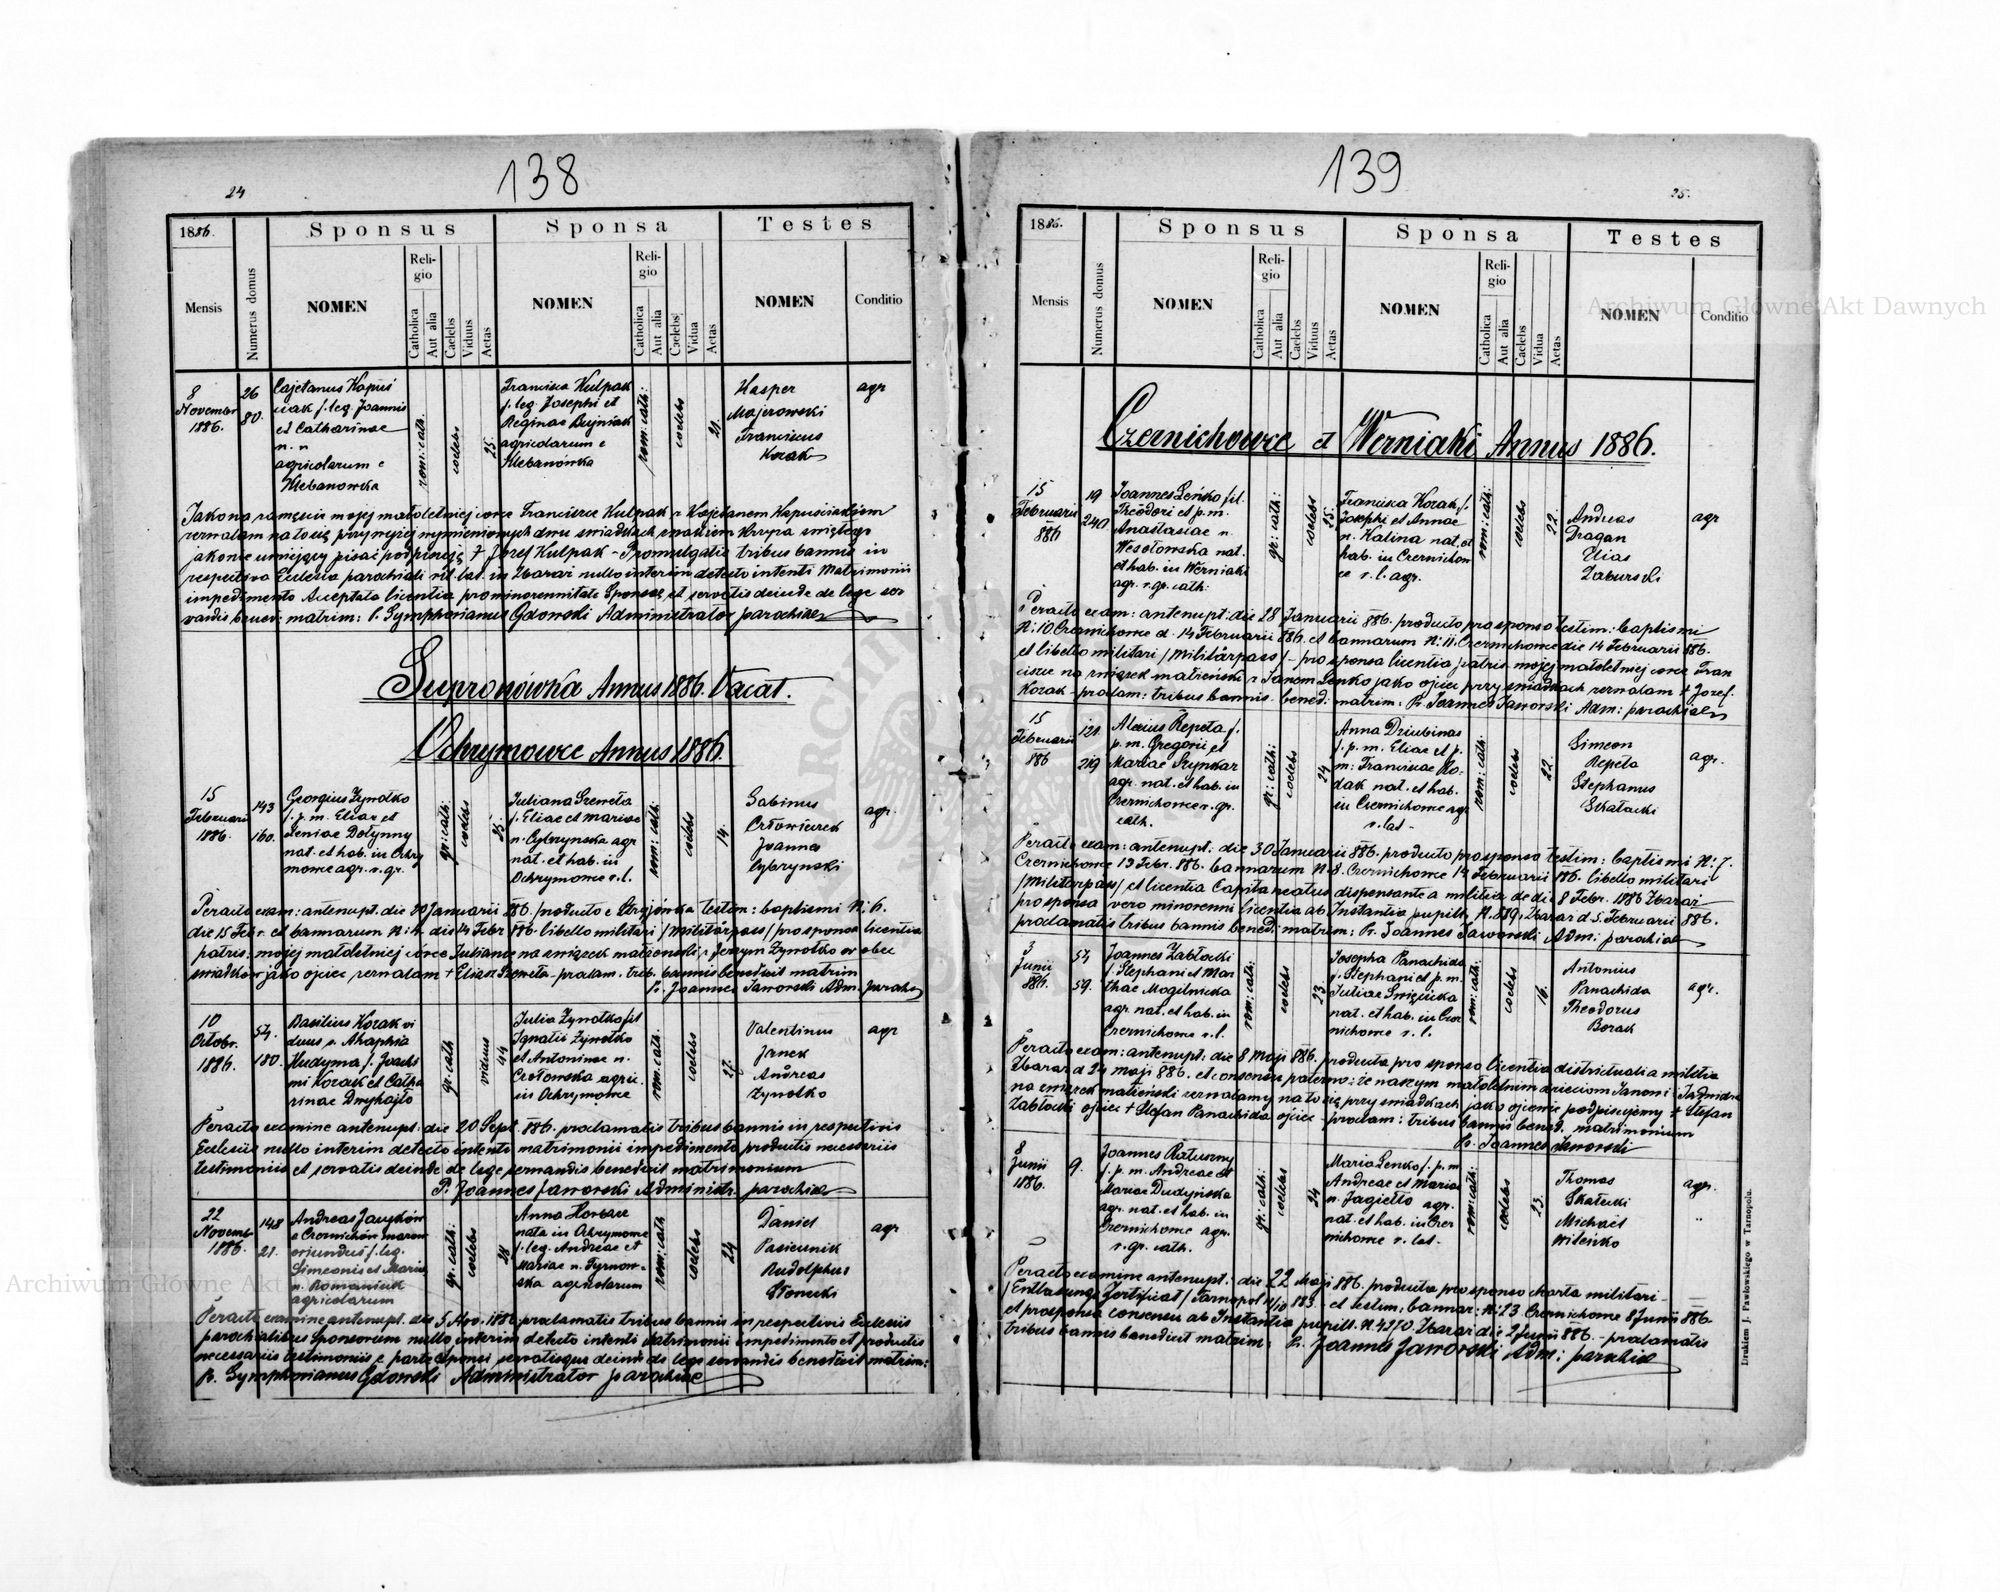 138
24
1886.
Sponsus
Sponsa
Testes
Mensis
Numerus domus
NOMEN
Religio
Catholica
Aut alia
Caelebs
Viduus
Aetas
NOMEN
Religio
Catholica
Aut alia
Caelebs
Vidua
Aetas
NOMEN
Conditio
8
Novembr
1886.
26
80.
Cajetanus Kapuś
ciak f. leg. Joannis
et Catharinae
n. n
agricolarum e
Klebanowka
rom: cath.
coelebs
25.
Francisca Kulpak
f. leg. Josephi et
Reginae Bujniak
agricolarum e
Klebanówka
rom: cath:
coelebs
21.
Kasper
Majerowski
Franciscus
Kozak
agr
Jako na zamęście mojej małoletniej córce Franciszce Kulpak z Kajetanem Kapuściakiem
zezwalam na to się przy niżej wymienionych dwu świadkach znakiem krzyża świętego
jako nie umiejący pisać podpisuję + Józef Kulpak - Promulgatis tribus bannis in
respectiva Ecclesia parochiali rit. lat. in Zbaraż nullo interim detecto intenti Matrimonii
impedimento Acceptata licentia pro minorennitate Sponsae et servatis deinde de lege ser
vandis bened: matrim: P. Symphorianus Gdowski Administrator parochiae
Supronówka Annus 1886. Vacat.
Ochrymowce Annus 1886.
15
Februarii
1886.
143
160.
Georgius Żynotko
f. p. m. Eliae et
Xeniae Dołynny
nat. et hab. in Ochry
mowce agr. r. gr.
gr: cath:
coelebs
25.
Juliana Szeweta
f. Eliae et Mariae
n. Cybrynska agr
nat. et hab. in
Ochrymowce r. l.
rom: cath:
coelebs
14.
Sabinus
Joannes
Cybrynski
agr.
Peracto exam: antenupt. die 30 Januarii 886. producto e Stryjówka testim: baptismi N: 6.
die 15 Febr. et bannorum N: 4. die 14 Febr 886. libello militari /Militärpass/ pro sponsa licentia
patris: mojej małoletniej córce Juliannie na związek małżeński z Jerzym Żynotko w obec
świadków jako ojciec zezwalam + Eliasz Szeweta - proclam. trib. bannis benedixit matrim
P. Joannes Jaworski Adm. paroch
10
Octobr.
1886.
54.
180.
Basilius Kozak vi
duus p. Ahaphia
Kudyma f. Joach
imi Kozak et Catha
rinae Dmyhajło
gr. cath
viduus
44
Julia Żynotko fil
Ignatii Żynotko
et Antoninae n.
agric.
in Ochrymowce
rom. cath.
coelebs
27.
Valentinus
Janek
Andreas
Żynotko
agr
Peracto examine antenupt. die 20 Sept. 886. proclamatis tribus bannis in respectivis
Ecclesiis nullo interim detecto intenti matrimonii impedimento productis necessariis
testimoniis et servatis deinde de lege servandis benedixit matrimonium
P. Joannes Jaworski Administr. parochiae
22
Novemb
1886.
148
21.
Andreas
e Czernichów mazow
oriundus f. leg.
Simeonis et Mariae
n. Romaniuk
agricolarum
gr: cath:
coelebs
28
Anna Horbacz
nata in Ochrymowce
f. leg. Andreae et
Mariae n. Tyrnow-
ska agricolarum
rom: cath
coelebs
24
Daniel
Pasiecznik
Rudolphus
Słonecki
agr
Peracto examine antenupt. die 5 Nov. 1886 proclamatis tribus bannis in respectivis Ecclesiis
parochialibus Sponsorum nullo interim detecto intenti Matrimonii impedimento et productis
necessariis testimoniis e parte Sponsi, servatisque deinde de lege servandis benedixit matrim:
P. Symphorianus Gdowski Administrator parochiae
139
25.
1886.
Sponsus
Sponsa
Testes
Mensis
Numerus domus
NOMEN
Religio
Catholica
Aut alia
Caelebs
Viduus
Aetas
NOMEN
Religio
Catholica
Aut alia
Caelebs
Vidua
Aetas
NOMEN
Conditio
Czernichowce et Werniaki Annus 1886.
15
Februarii
886
19
240
Joannes Leńko fil.
Theodori et p. m.
Anastasiae n.
Wesołowska nat.
et hab. in Werniaki
agr. r. gr. cath.
gr: cath:
coelebs
25.
Francisca Kozak f.
Josephi et Annae
n. Kalina nat. et
hab. in Czernichow
ce r. l. agr.
rom: cath:
coelebs
22.
Andreas
Dragan
Elias
Zaburski
agr
Peracto exam: antenupt: die 28 Januarii 886. producto pro sponso testim: baptismi
N: 10 Czernichowce d. 14 Februarii 886. et bannorum N: 11. Czernichowce die 14 Februarii 886.
et libello militari /Militärpass/ - pro sponsa licentia patris mojej małoletniej córce Fran
ciszce na związek małżeński z Janem Leńko jako ojciec przy świadkach zezwalam + Józef
Kozak - proclam: tribus bannis bened: matrim: P. Joannes Jaworski Adm: parochiae
15
Februarii
886
121.
219
Alexius Repeta f.
p. m. Gregorii et
Mariae Szynkar
agr. nat. et hab. in
Czernichowce r. gr.
cath.
gr: cath:
coelebs
24
Anna Dziubinas
f. p. m. Eliae et p.
m: Franciscae Ro-
dak nat. et hab.
in Czernichowce agr
r. lat -
rom: cath:
coelebs
22.
Simeon
Repeta
Stephanus
Skałacki
agr.
Peracto exam: antenupt: die 30 Januarii 886. producto pro sponso testim: baptismi N: 7.
Czernichowce 13 Febr. 886. bannorum N: 8. Czernichowce 14 Februarii 886. libello militari
/Militärpass/ et licentia Capitaneatus dispensante a militia de die 8 Febr. 1886 Zbaraż
pro sponsa vero minorenni licentia ab Instantia pupill. N. 889. Zbaraż d 5. Februarii 886.
proclamatis tribus bannis bened: matrim: P. Joannes Jaworski Adm: parochiae
3
Junii
886.
54
59.
Joannes Zabłocki
f. Stephani et Mar
thae Mogilnicka
agr. nat. et hab. in
Czernichowce r. l.
rom: cath:
coelebs
23
Josepha Panachida
f. Stephani et p. m.
Juliae
nat. et hab. in Czer
nichowce r. l.
rom: cath:
coelebs
16.
Antonius
Panachida
Theodorus
Borak
agr.
Peracto exam: antenupt: die 8 Maji 886. producta pro sponso licentia districtuali a militia
Zbaraż d 24 maji 886. et consensu paterno: że naszym małoletnim dzieciom Janowi i Jadwidze
na związek małżeński zezwalamy na to się przy świadkach jako ojcowie podpisujemy + Stefan
Zabłocki ojciec + Stefan Panachida ojciec - proclam: tribus bannis bened. matrimonium
P. Joannes Jaworski
8
Junii
1886.
9.
Joannes Ratuszny
f. p. m. Andreae et
Mariae Dudyńska
agr. nat. et hab. in
Czernichowce agr.
r. gr. cath.
gr: cath:
coelebs
24
Maria Leńko f. p. m
Andreae et Mariae
n. Jagiełło agr.
nat. et hab. in Czer
nichowce r. lat.
rom: cath:
coelebs
23.
Thomas
Skałecki
Michael
Witeńko
agr.
Peracto examine antenupt: die 22 Maji 886. producta pro sponso charta militari -
/Entlassungs Zertificat/ Tarnopol 14/10 883. - et testim. bannor: N: 23 Czernichowce 8 Junii 886.
et pro sponsa consensu ab Instantia pupill. N. 4270. Zbaraż die 2 Junii 886. - proclamatis
tribus bannis benedixit matrim: P. Joannes Jaworski Adm: parochiae
Drukiem J. Pawłowskiego w Tarnopolu.
Archiwum Główne Akt Dawnych
Archiwum Główne Akt